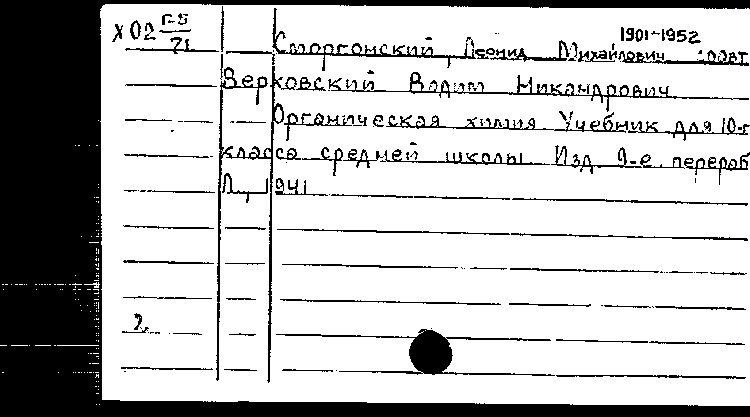 1901-1952
Х02 Г-5/71 Сморгонский, Леонид Михайлович соавт
Верховский Вадим Никандрович
Органическая химия Учебник для 10-г
класса средней школы Изд 9-е перераб
Л., 1941
2.